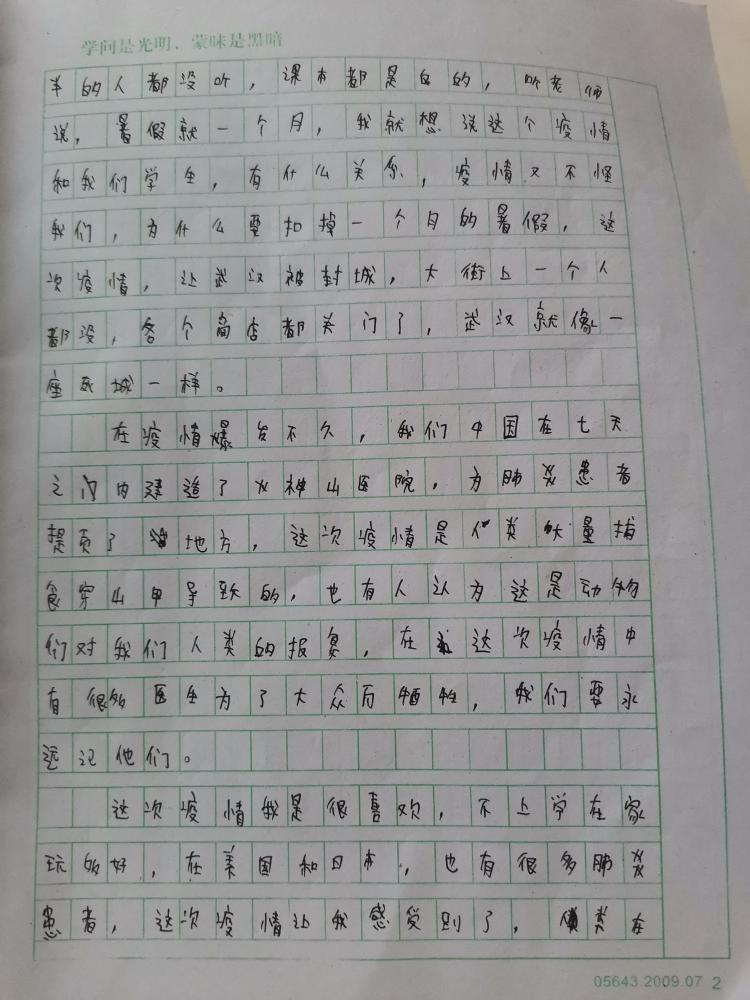 学问是光明，蒙昧是黑暗
半的人都没听，课本都是白的，听老师
说，暑假就一个月，我就想说这个疫情
和我们学生，有什么关系，疫情又不怪
我们，为什么要扣掉一个月的暑假，这
次疫情，让武汉被封城，大街上一个人
都没，各个商店都关门了，武汉就像一
座死城一样。
在疫情爆发不久，我们中国在七天
之门内建造了火神山医院，为肺炎患者
提页了地方，这次疫情是人类大量捕
食穿山甲导致的，也有人认为这是动物
们对我们人类的报复，在这次疫情中
有很多医生为了大众而牺牲，我们要永
远记他们。
这次疫情我是很喜欢，不上学在家
玩的好，在美国和日本，也有很多肺炎
患者，这次疫情让我感受到了，人类在
05643.2009.07 2